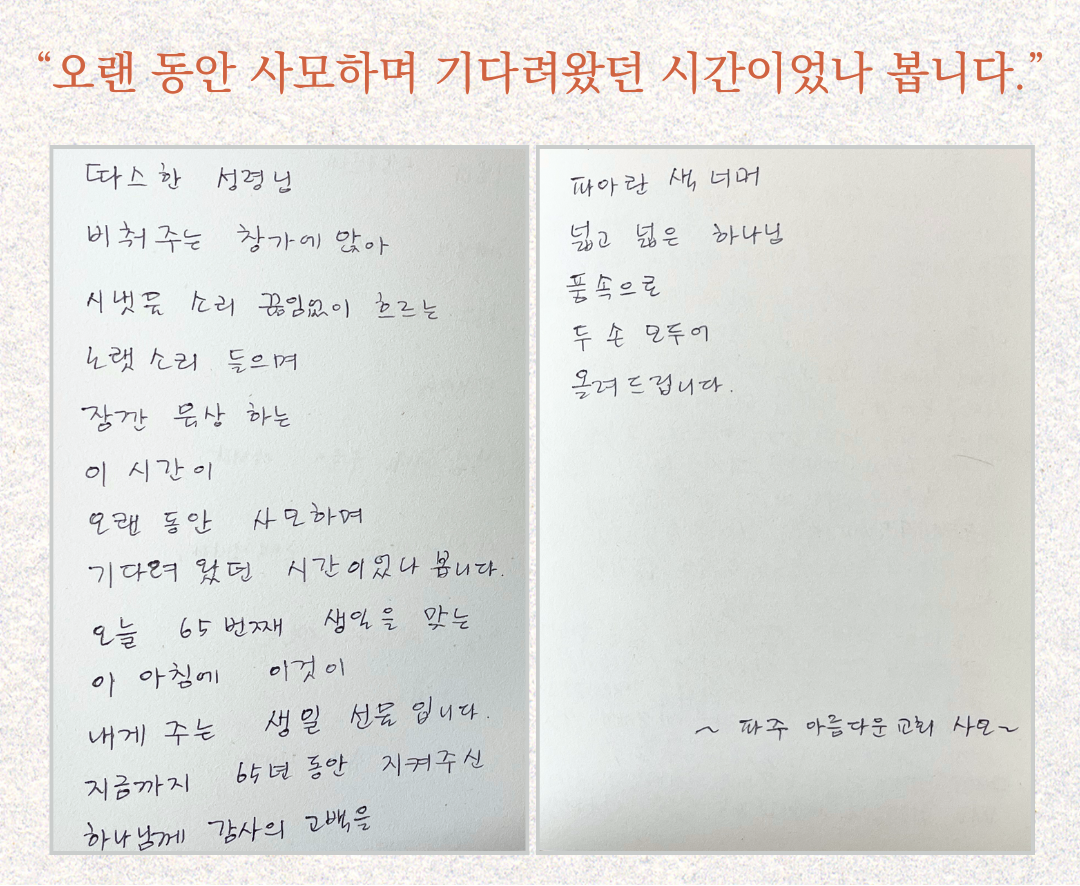 “오랜 동안 사모하며 기다려왔던 시간이었나 봅니다.”
따스한 성령님
비춰주는 창가에 앉아
시냇물 소리 끊임없이 흐르는
노랫소리 들으며
잠깐 묵상 하는
이 시간이
오랜 동안 사모하며
기다려 왔던 시간이었나 봅니다.
오늘 65번째 생일을 맞는
이 아침에 이것이
내게 주는 생일 선물입니다.
지금까지 65년 동안 지켜주신
하나님께 감사의 고백을
파아란 색 너머
넓고 넓은 하나님
품속으로
두 손 모두어
올려드립니다.
~ 파주 아름다운교회 사모~